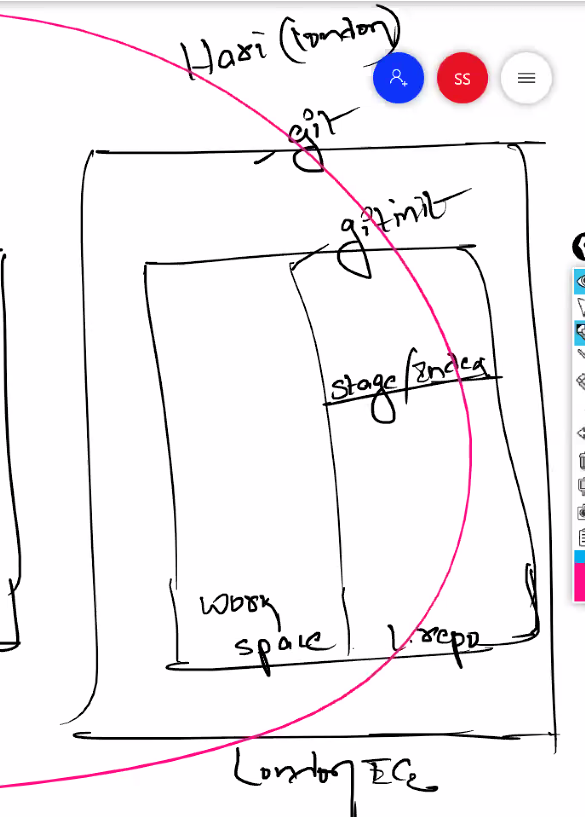 Hari (London)
SS
git
git init
stage/Index
Work
space
L.repo
London EC2